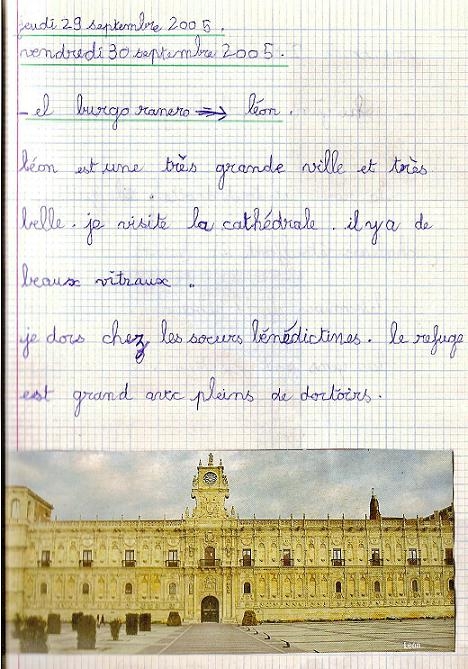 jeudi 29 septembre 2005.
vendredi 30 septembre 2005.
- el burgo ranero ⇒ léon.
léon est une très grande ville et très
belle. je visite la cathédrale. il y a de
beaux vitraux.
je dors chez les soeurs bénédictines. le refuge
est grand avec pleins de dortoirs.
León